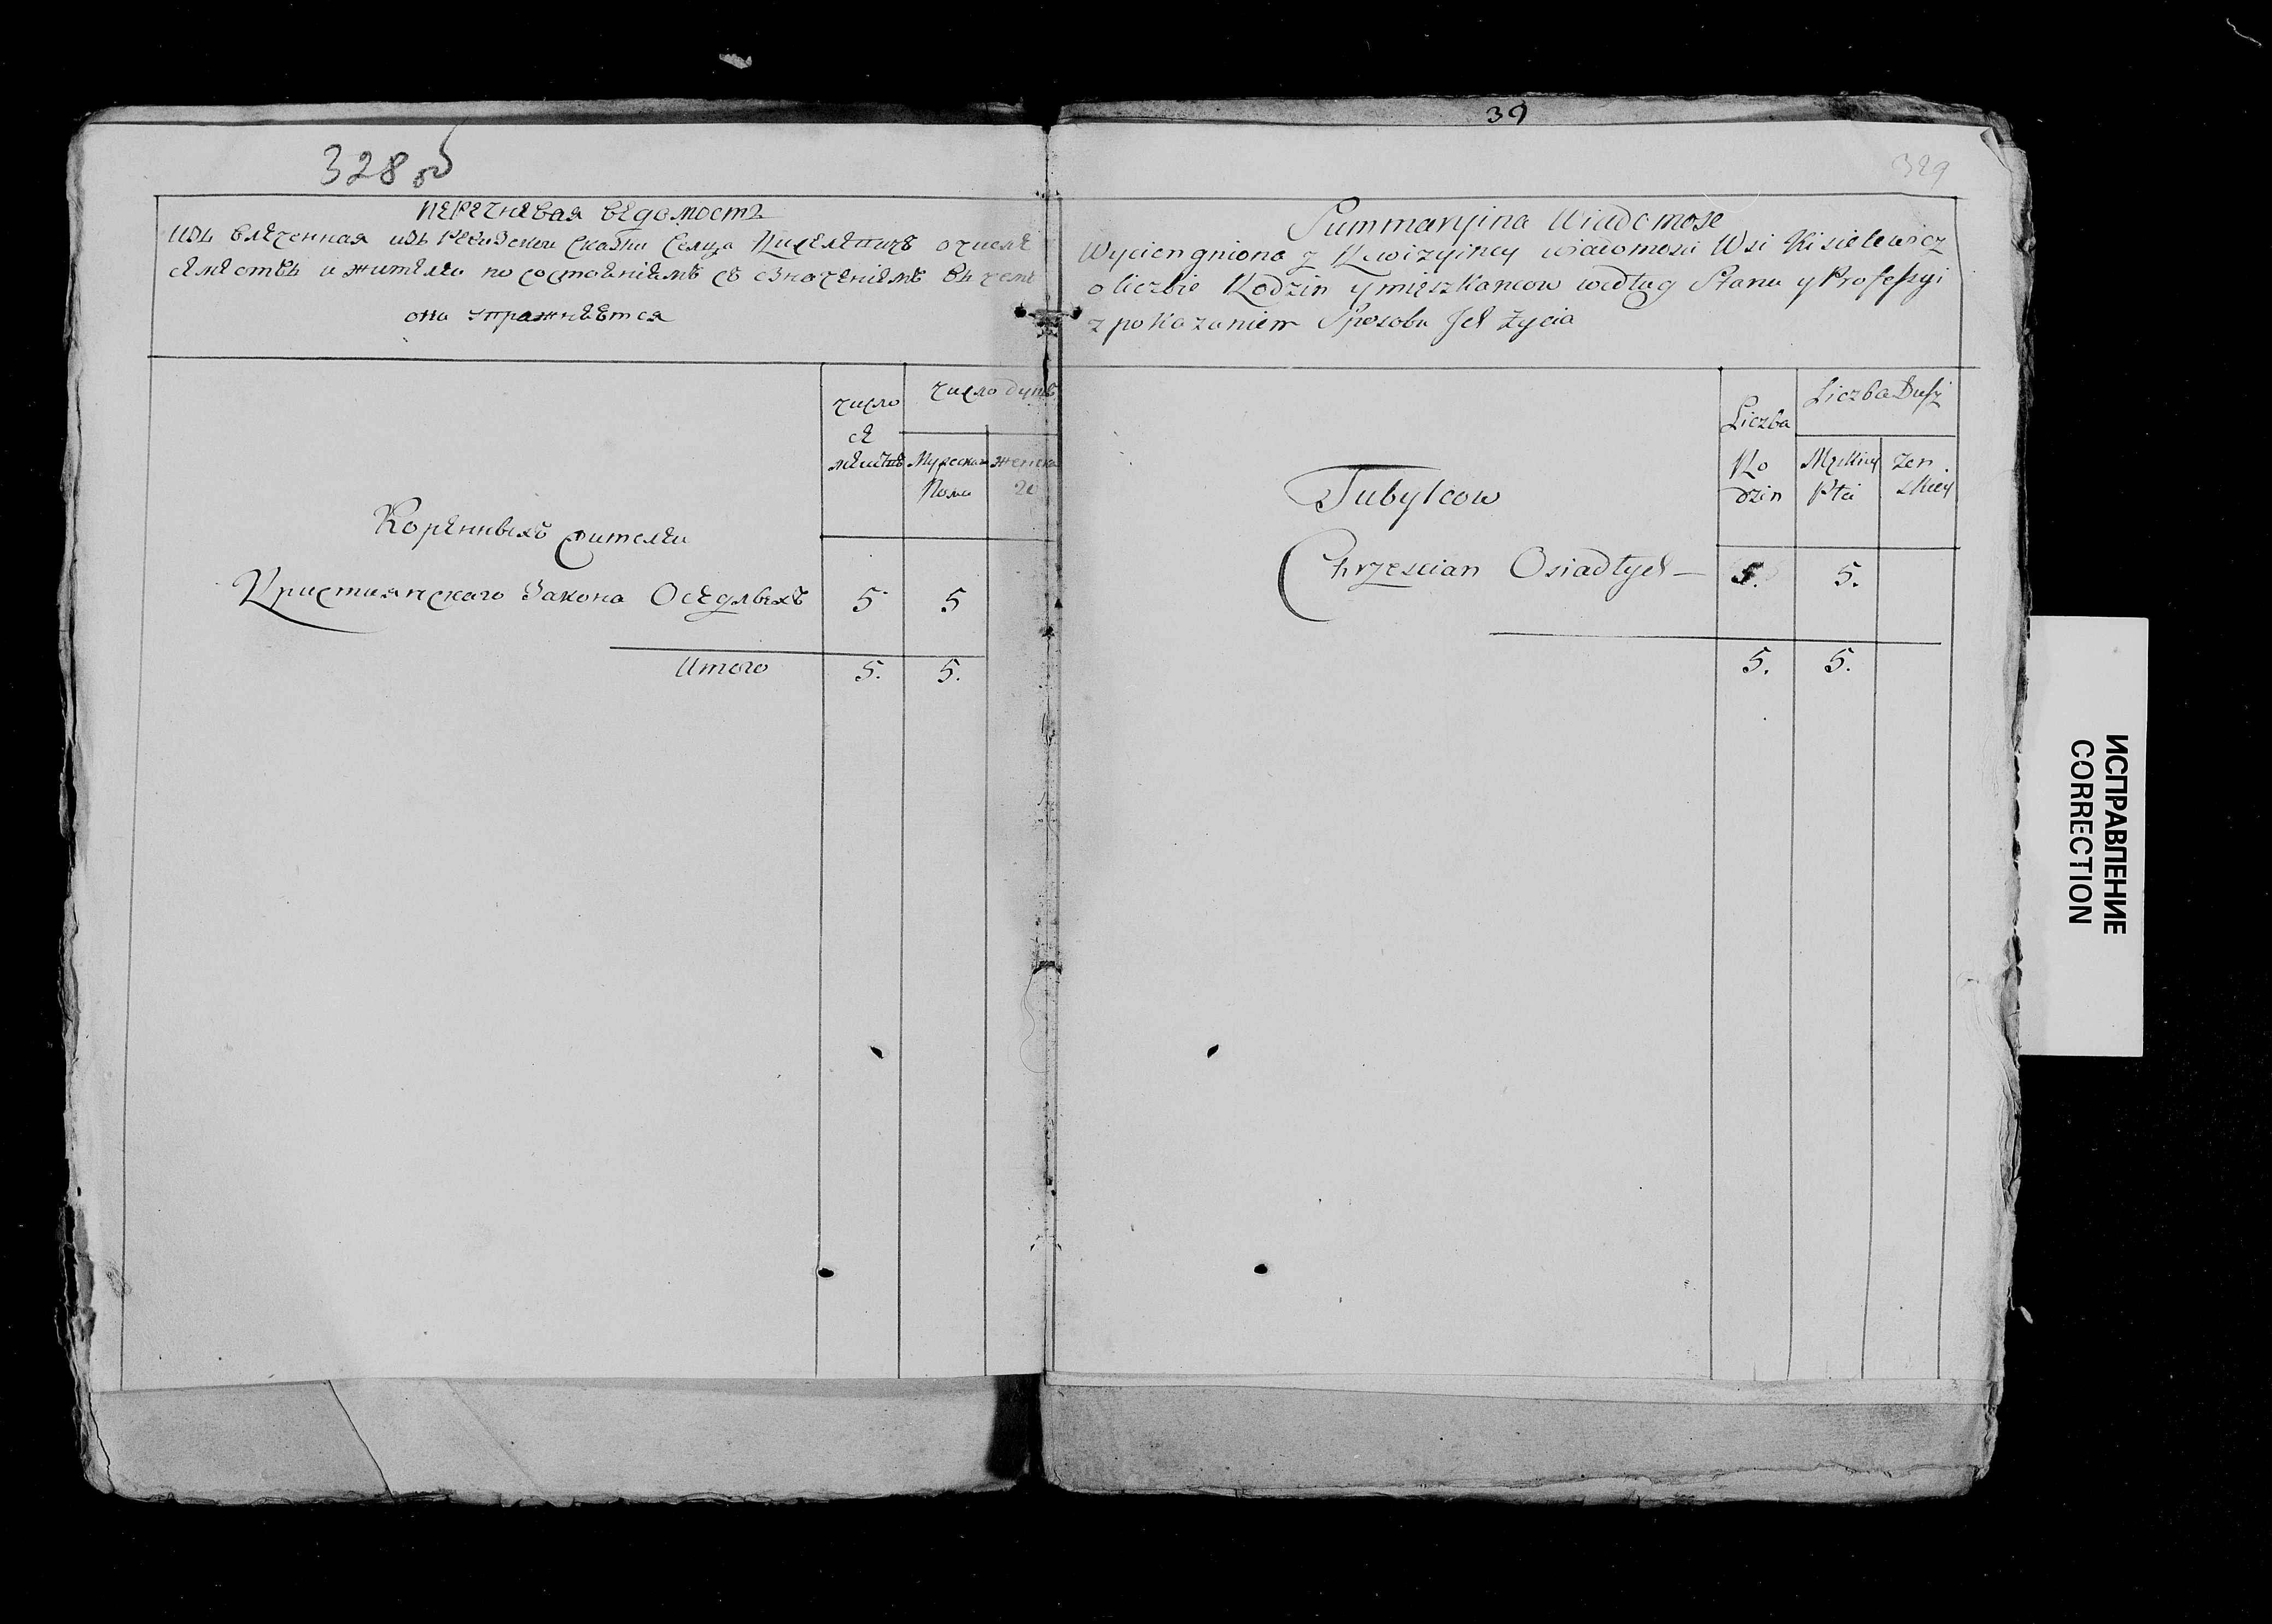 328 об
перечневая ведомость
изъ влеченная изъ Ревизской Скаски Селца Киселевичъ о числе
семействъ и жителеи по состоениемъ съ означениемъ въ чемъ
она упражняется
число
се
мействъ
число душъ
Мужеска
Пола
женска
го
Коренныхъ жителеи
Християнскаго Закона Оседлыхъ 5 5
Итого 5. 5.
39
329
Summaryina Wiadomosc
Wyciengniona z Rewizyiney wiadomosci Wsi Kisielewicz
o liczbie Rodzin y mięszkancow według Stanu y Professyi
z pokazaniem Sposobu Ich życia
Liczba
Ro
dzin
Liczba Dusz
Męskiey
Płci
Żen
skiey
Tubylcow
Chrzescian Osiadłych — 5. 5.
5. 5.
ИСПРАВЛЕНИЕ
CORRECTION